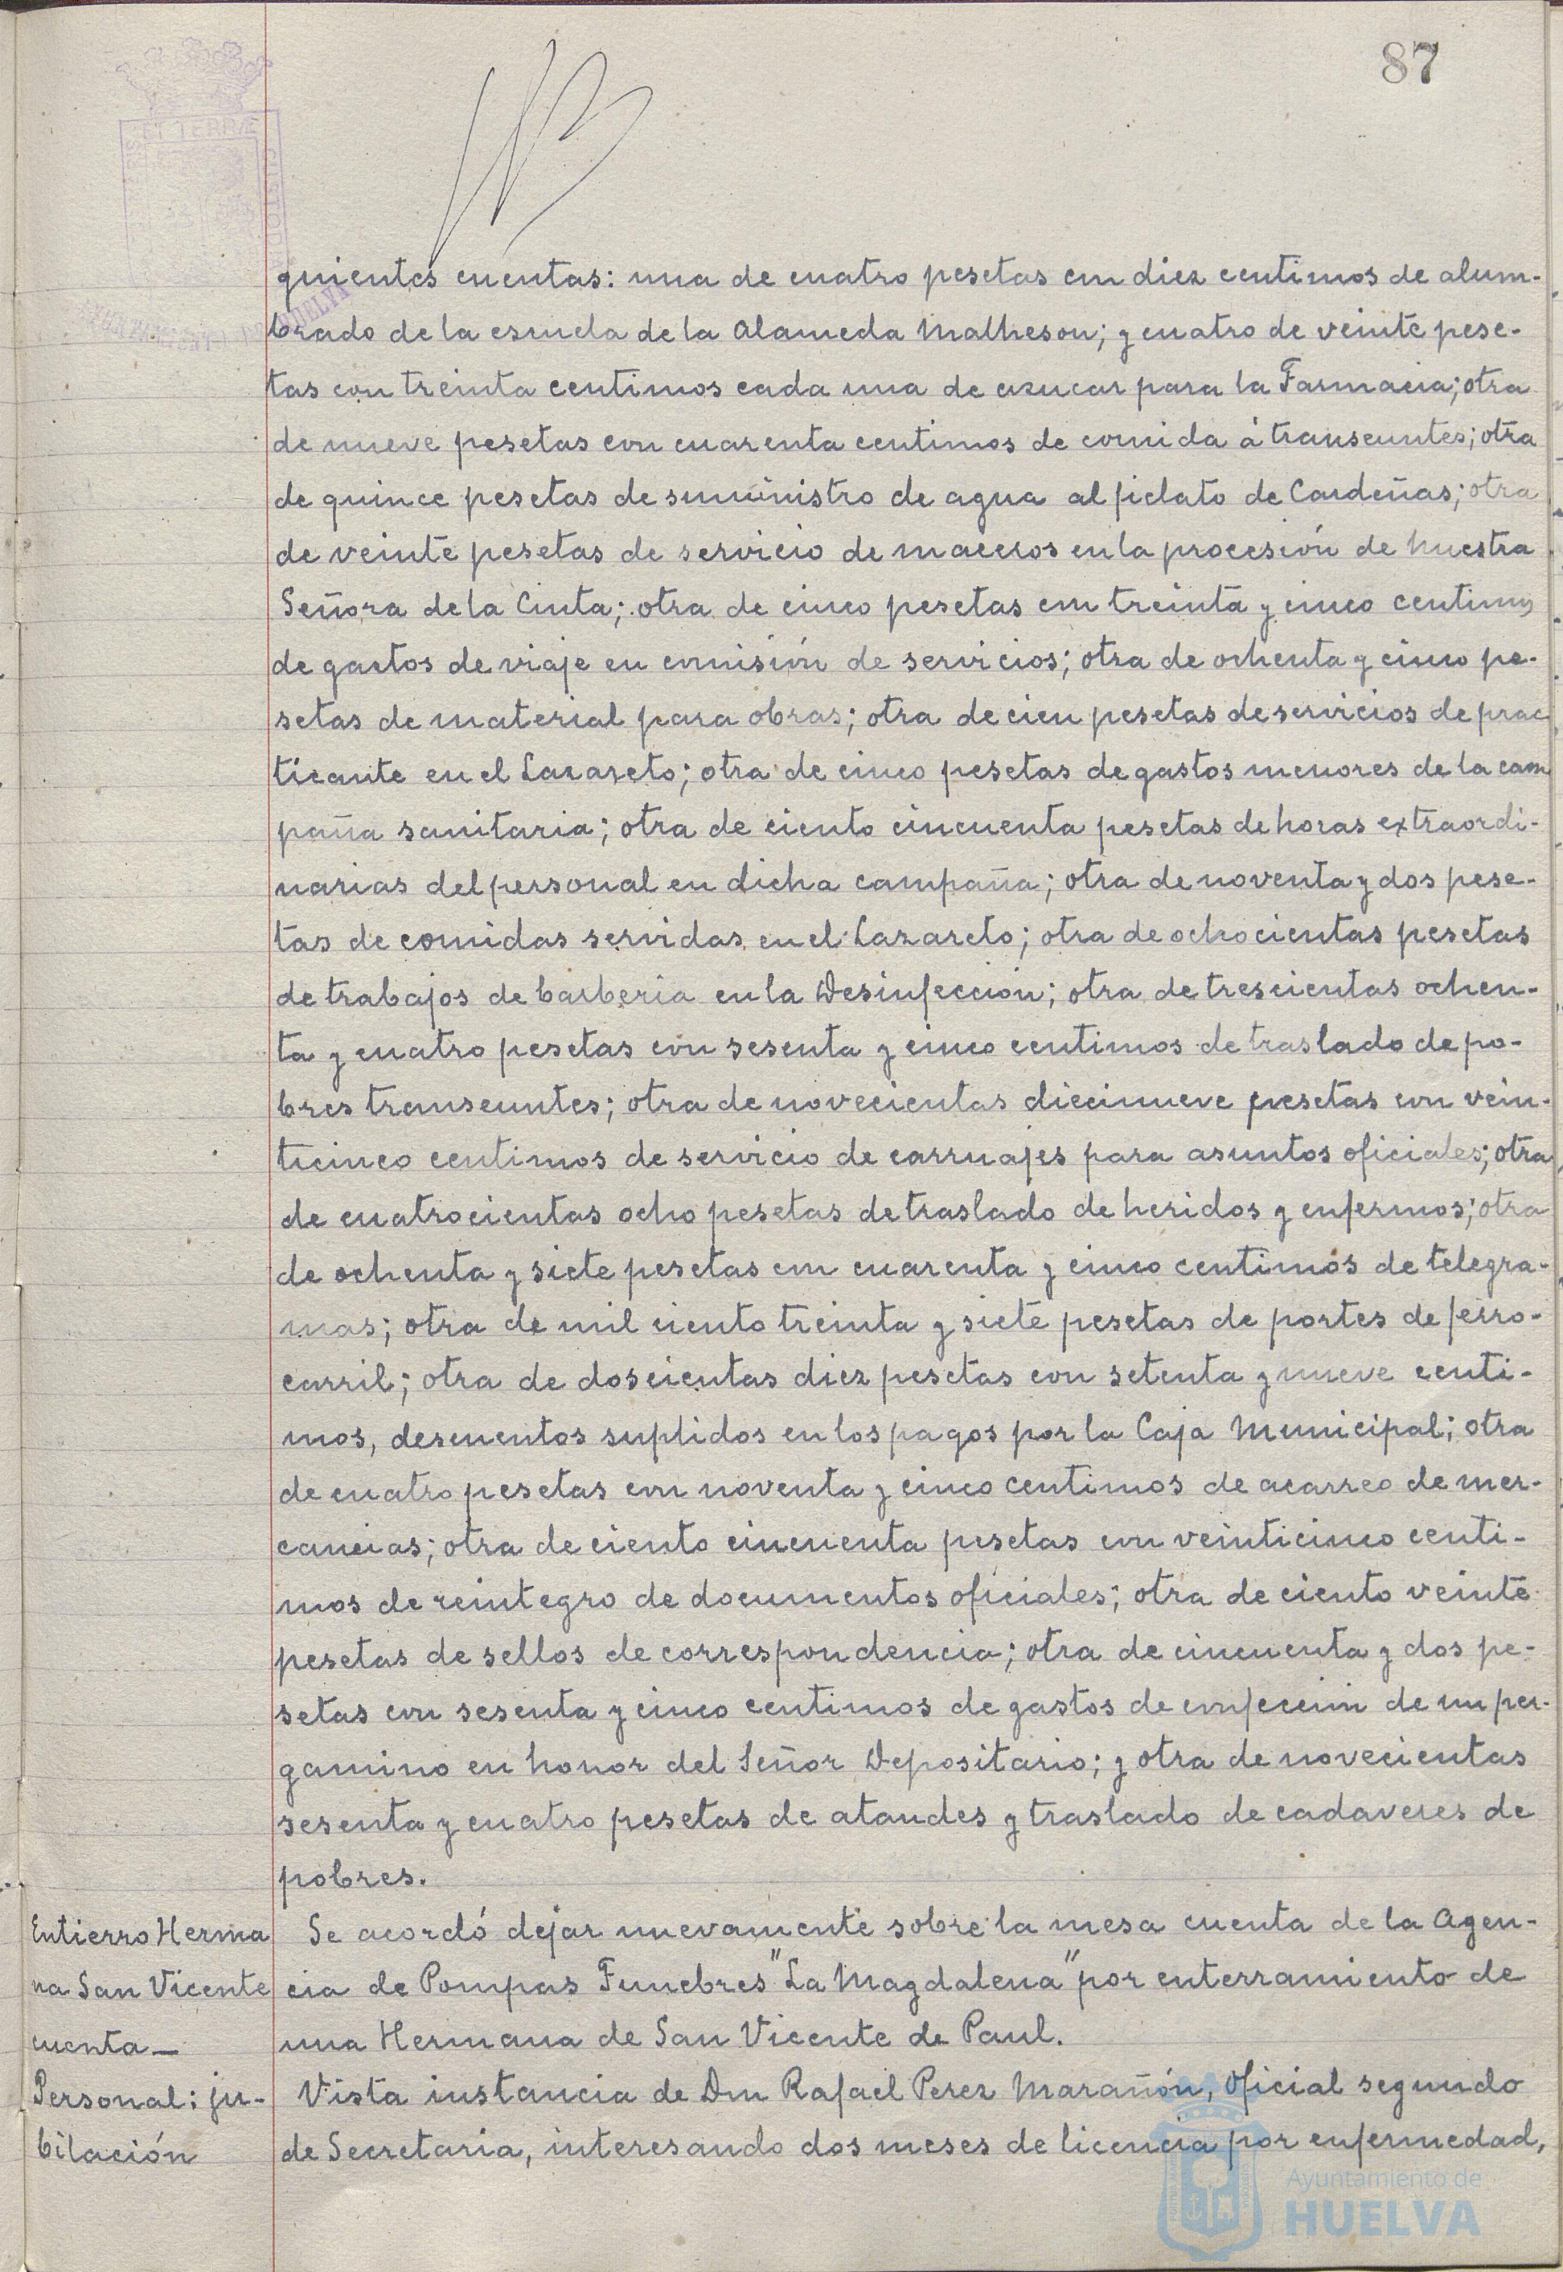 87
guientes cuentas: una de cuatro pesetas con diez centimos de alum-
brado de la escuela de la Alameda Matheson; y cuatro de veinte pese-
tas con treinta centimos cada una de azucar para la Farmacia; otra
de nueve pesetas con cuarenta centimos de comida á transeuntes; otra
de quince pesetas de suministro de agua al fielato de Cardeñas; otra
de veinte pesetas de servicio de maceros en la procesión de Nuestra
Señora de la Cinta; otra de cinco pesetas con treinta y cinco centimos
de gastos de viaje en comisión de servicios; otra de ochenta y cinco pe-
setas de material para obras; otra de cien pesetas de servicios de prac
ticante en el Lazareto; otra de cinco pesetas de gastos menores de la cam
paña sanitaria; otra de ciento cincuenta pesetas de horas extraordi-
narias del personal en dicha campaña; otra de noventa y dos pese-
tas de comidas servidas en el Lazareto; otra de ochocientas pesetas
de trabajos de barberia en la Desinfección; otra de trescientas ochen-
ta y cuatro pesetas con sesenta y cinco centimos de traslado de po-
bres transeuntes; otra de novecientas diecinueve pesetas con vein-
ticinco centimos de servicio de carruajes para asuntos oficiales; otra
de cuatrocientas ocho pesetas de traslado de heridos y enfermos; otra
de ochenta y siete pesetas con cuarenta y cinco centimos de telegra-
mas; otra de mil ciento treinta y siete pesetas de portes de ferro-
carril; otra de doscientas diez pesetas con setenta y nueve centi-
mos, descuentos suplidos en los pagos por la Caja Municipal; otra
de cuatro pesetas con noventa y cinco centimos de acarreo de mer-
cancias; otra de ciento cincuenta pesetas con veinticinco centi-
mos de reintegro de documentos oficiales; otra de ciento veinte
pesetas de sellos de correspondencia; otra de cincuenta y dos pe-
setas con sesenta y cinco centimos de gastos de confección de un per-
gamino en honor del Señor Depositario; y otra de novecientas
sesenta y cuatro pesetas de ataudes y traslado de cadaveres de
pobres.
Entierro Herma
na San Vicente
cuenta—
Se acordó dejar nuevamente sobre la mesa cuenta de la Agen-
cia de Pompas Funebres "La Magdalena" por enterramiento de
una Hermana de San Vicente de Paul.
Personal: ju-
bilación
Vista instancia de Don Rafael Perez Marañón, Oficial segundo
de Secretaria, interesando dos meses de licencia por enfermedad,
Ayuntamiento de
HUELVA